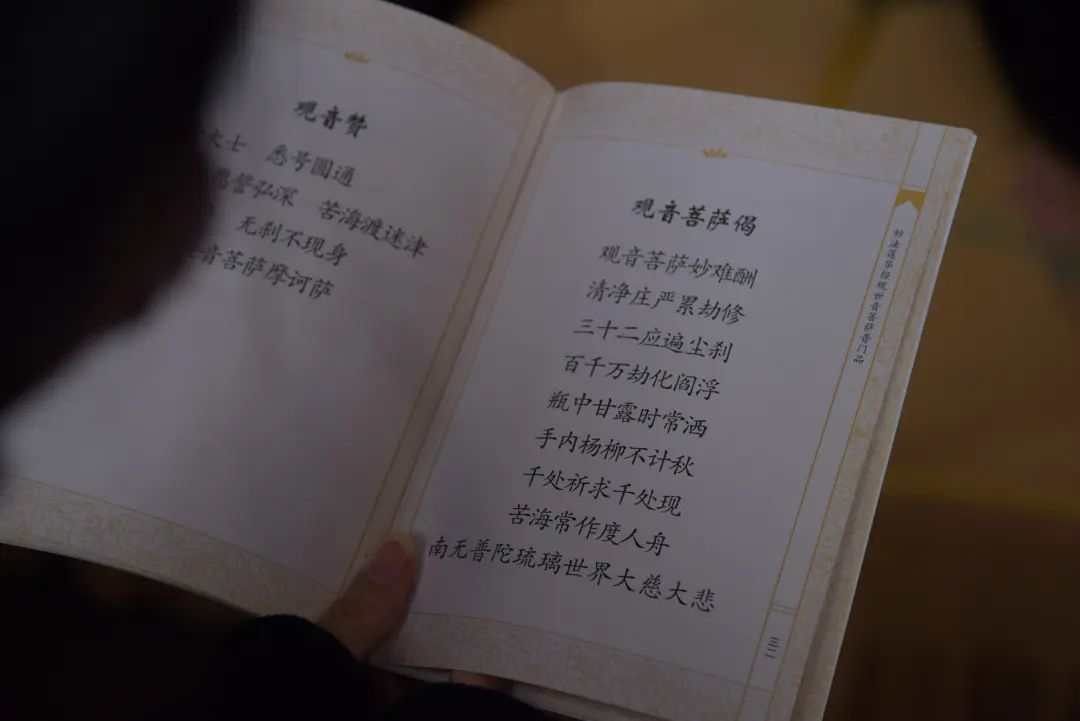 观音赞
大士 悉号圆通
誓弘深 苦海渡迷津
无刹不现身
音菩萨摩诃萨
观音菩萨偈
观音菩萨妙难酬
清净庄严累劫修
三十二应遍尘刹
百千万劫化阎浮
瓶中甘露时常洒
手内杨柳不计秋
千处祈求千处现
苦海常作度人舟
南无普陀琉璃世界大慈大悲
妙法莲华经观世音菩萨普门品
三二